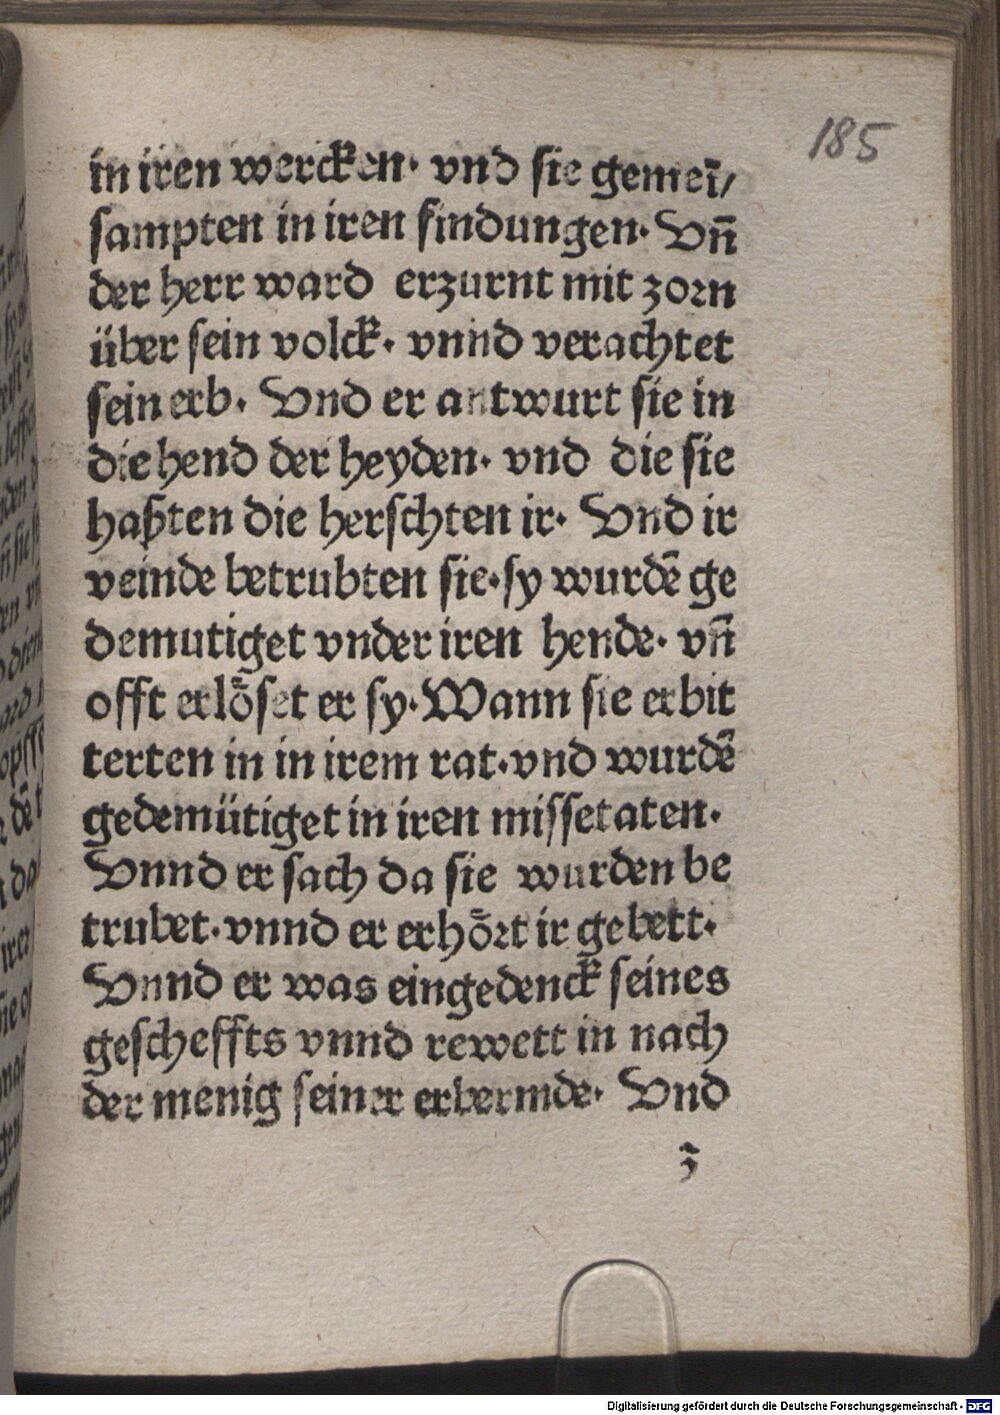 185
in iren wercken· vnd sie gemeī/
sampten in iren findungen· Vn̄
der herr ward erzurnt mit zorn
über sein volck· vnnd verachtet
sein erb· Vnd er antwurt sie in
die hend der heyden· vnd die sie
haßten die herschten ir· Vnd ir
veinde betrubten sie·sy wurdē ge
demutiget vnder iren hende· vn̄
offt erlöset er sy·Wann sie erbit
terten in in irem rat·vnd wurdē
gedemütiget in iren missetaten·
Vnnd er sach da sie wurden be
trubet·vnnd er erhört ir gebett·
Vnnd er was eingedenck seines
gescheffts vnnd rewett in nach
der menig seiner erbermde· Vnd
z
Digitalisierung gefördert durch die Deutsche Forschungsgemeinschaft - DFG